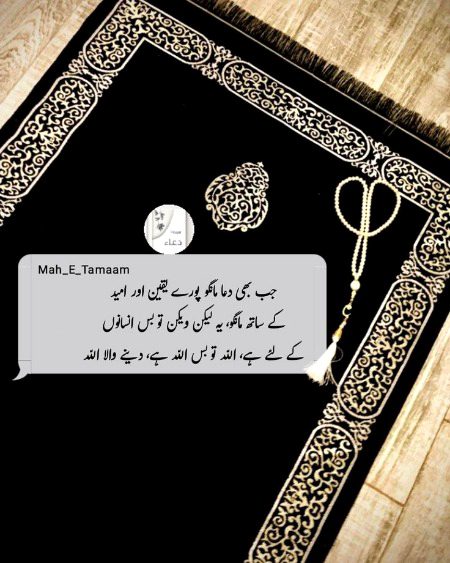 دعاء
Mah_E_Tamaam
جب بھی دعا مانگو پورے یقین اور امید
کے ساتھ مانگو، یہ لیکن ویکن تو بس انسانوں
کے لئے ہے، اللہ تو بس اللہ ہے، دینے والا اللہ